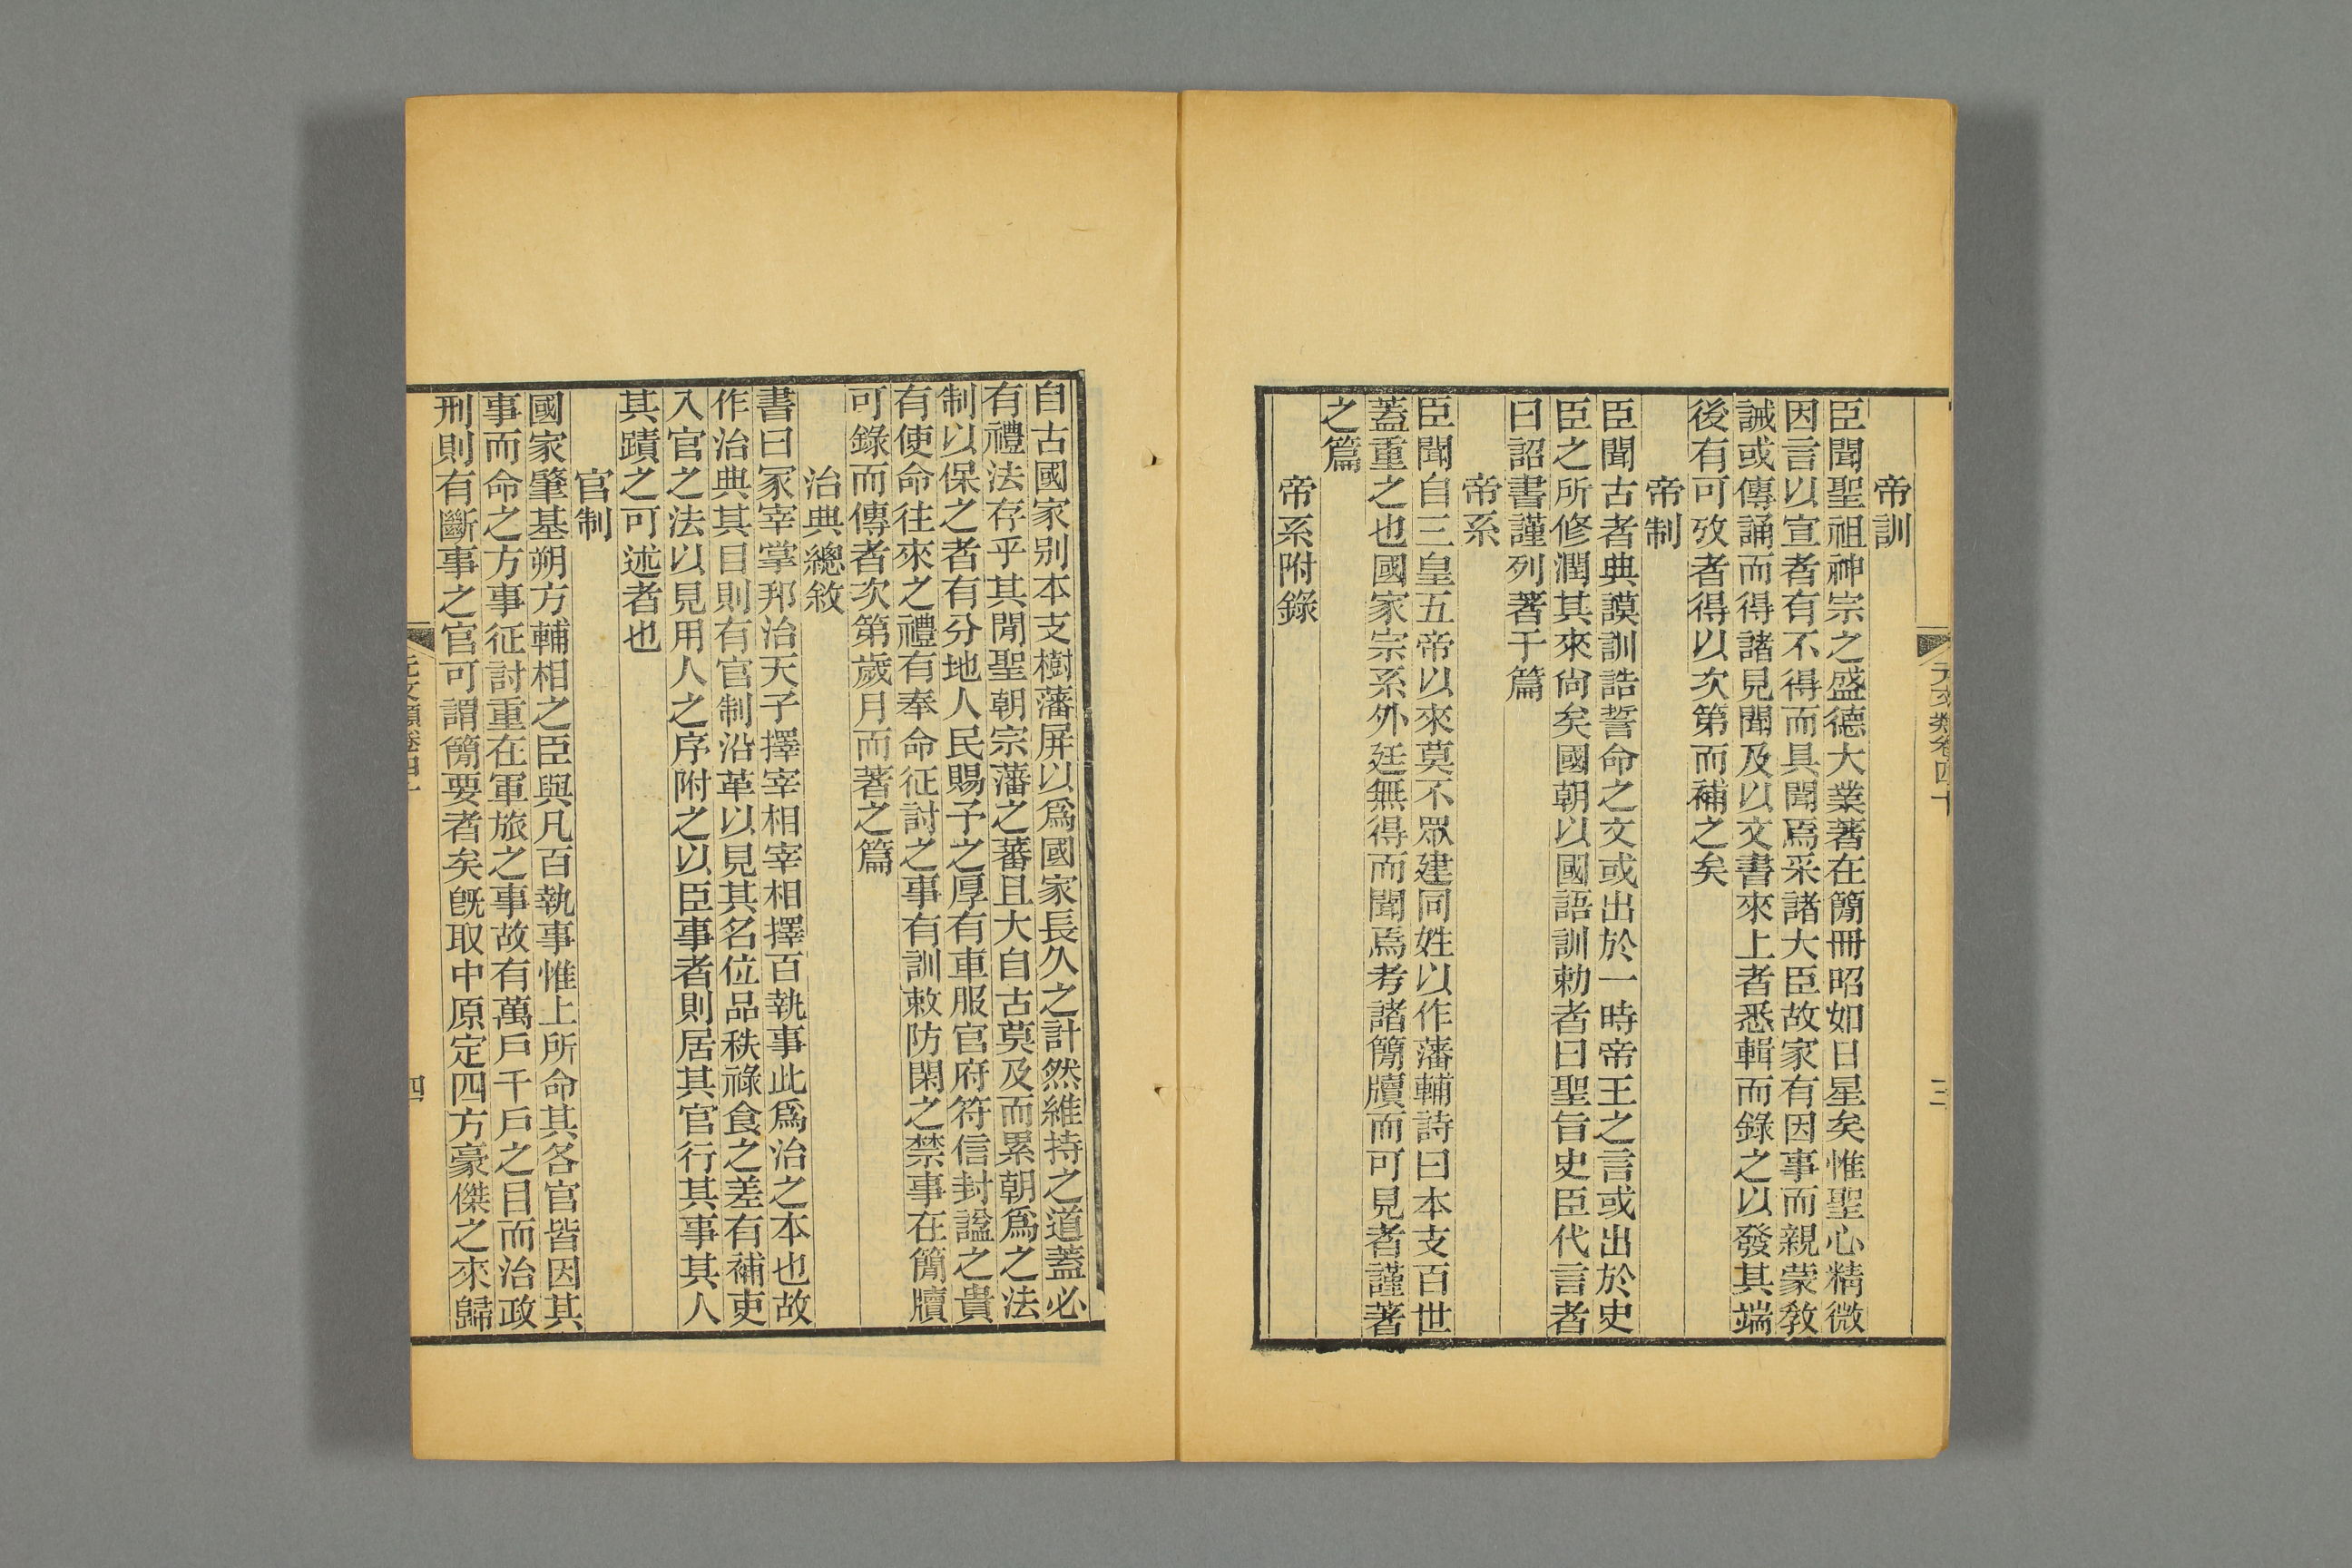 帝訓
臣聞聖祖神宗之盛德大業著在簡冊昭如日星矣惟聖心精微
因言以宣者有不得而具聞焉采諸大臣故家有因事而親蒙敎
誡或傳誦而得諸見聞及以文書來上者悉輯而錄之以發其端
後有可攷者得以次第而補之矣
帝制
臣聞古者典謨訓誥誓命之文或出於一時帝王之言或出於史
臣之所修潤其來尙矣國朝以國語訓勅者曰聖旨史臣代言者
曰詔書謹列著于篇
帝系
臣聞自三皇五帝以來莫不眾建同姓以作藩輔詩曰本支百世
蓋重之也國家宗系外廷無得而聞焉考諸簡牘而可見者謹著
之篇
帝系附錄
元文類卷四十
三
自古國家别本支樹藩屏以爲國家長久之計然維持之道蓋必
有禮法存乎其閒聖朝宗藩之蕃且大自古莫及而累朝爲之法
制以保之者有分地人民賜予之厚有車服官府符信封諡之貴
有使命往來之禮有奉命征討之事有訓敕防閑之禁事在簡牘
可錄而傳者次第歲月而著之篇
治典總敘
書曰冢宰掌邦治天子擇宰相宰相擇百執事此爲治之本也故
作治典其目則有官制沿革以見其名位品秩祿食之差有補吏
入官之法以見用人之序附之以臣事者則居其官行其事其人
其蹟之可述者也
官制
國家肇基朔方輔相之臣與凡百執事惟上所命其各官皆因其
事而命之方事征討重在軍旅之事故有萬戶千戶之目而治政
刑則有斷事之官可謂簡要者矣旣取中原定四方豪傑之來歸
元文類卷四十
四